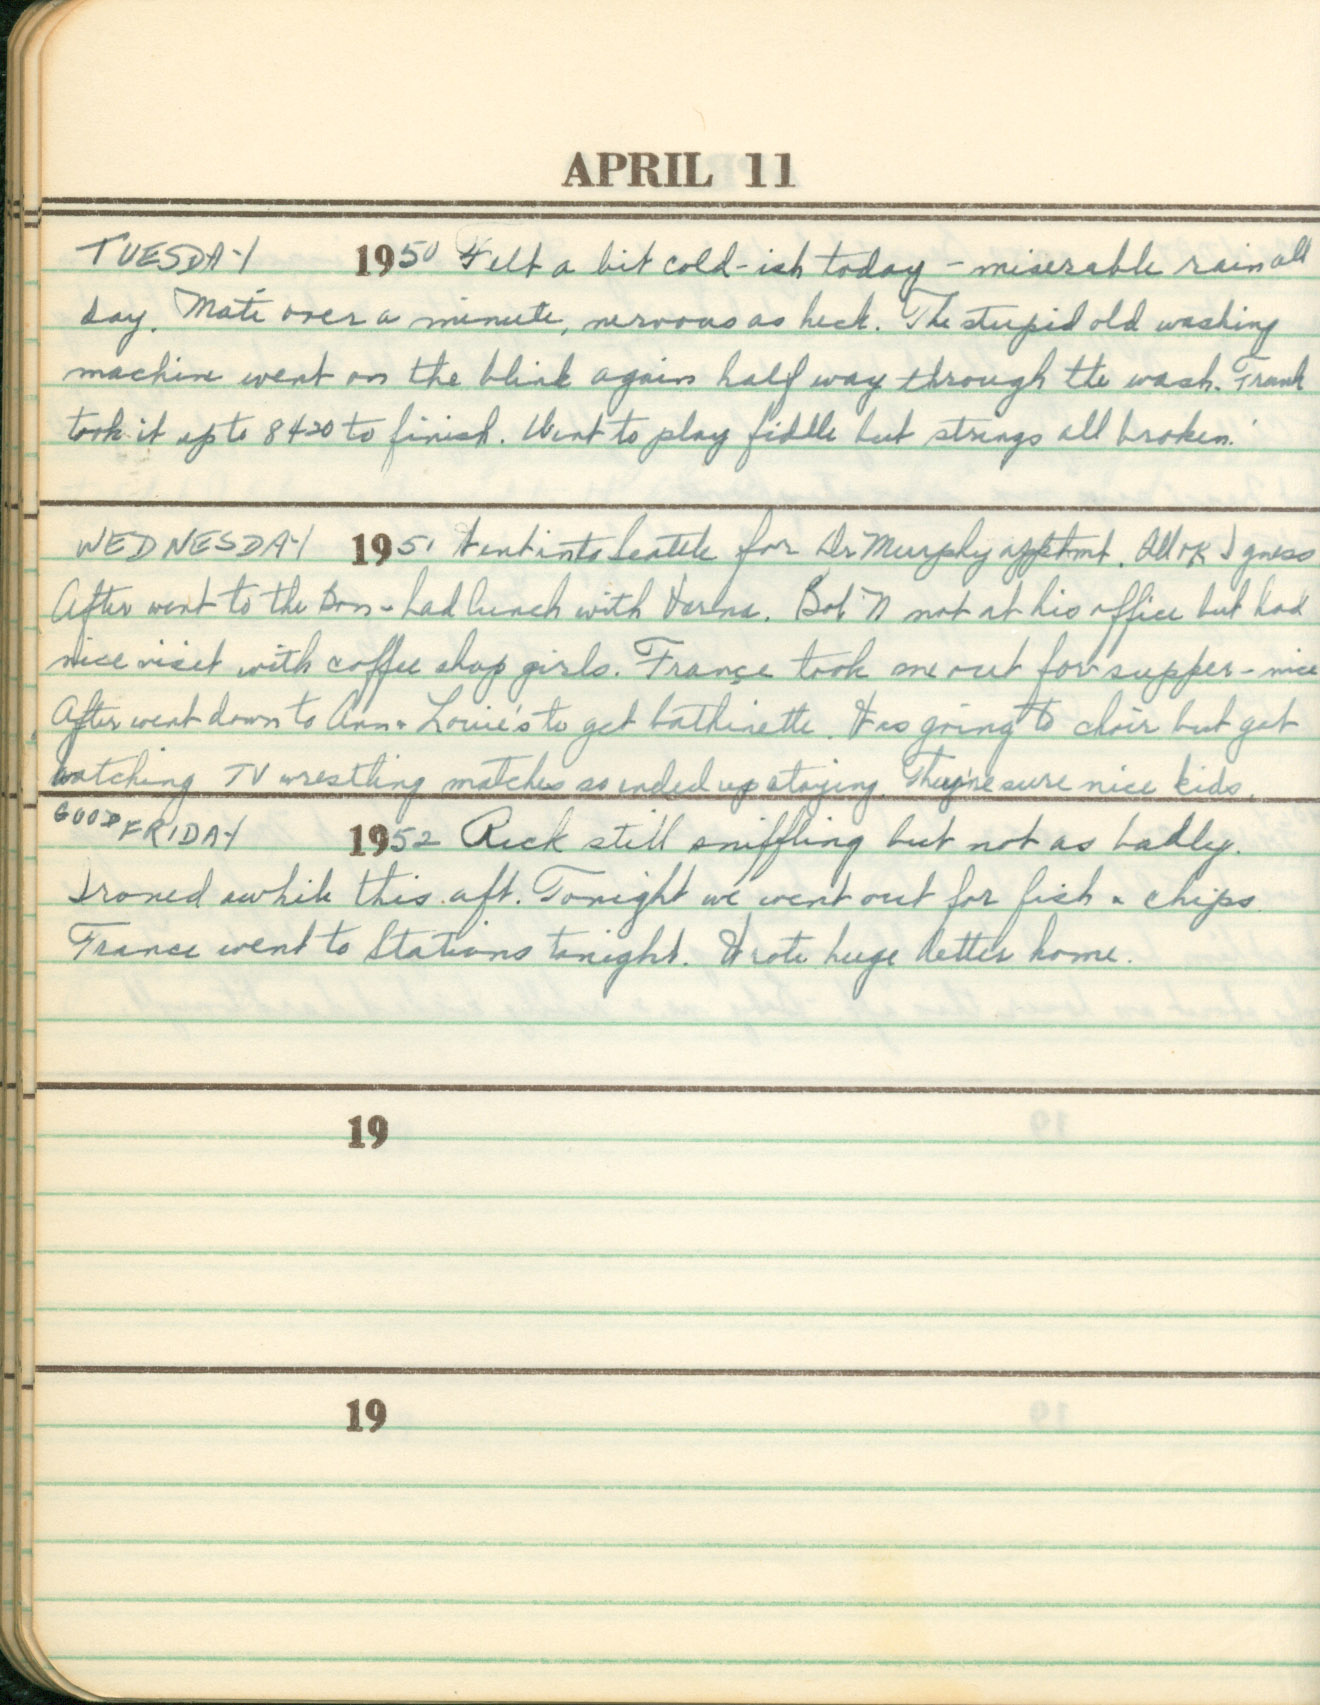 APRIL 11
TUESDAY 1950 Felt a bit cold-ish today - miserable rain all
day. Mati over a minute, nervous as heck. The stupid old washing
machine went on the blink again half way through the wash. Frank
took it up to 8420 to finish. Went to play fiddle but strings all broken.
WEDNESDAY 1951 Went into Seattle for Dr Murphy apptmt. All OK I guess
After went to the Bon - had lunch with Varna. Bob N not at his office but had
nice visit with coffee shop girls. France took me out for supper - nice
After went down to Ann & Louie's to get bathinette. Was going to choir but got
watching TV wrestling matches so ended up staying. They're sure nice kids.
GOOD FRIDAY 1952 Rick still sniffling but not as badly.
Ironed awhile this aft. Tonight we went out for fish & chips
France went to Stations tonight. Wrote huge letter home.
19
19